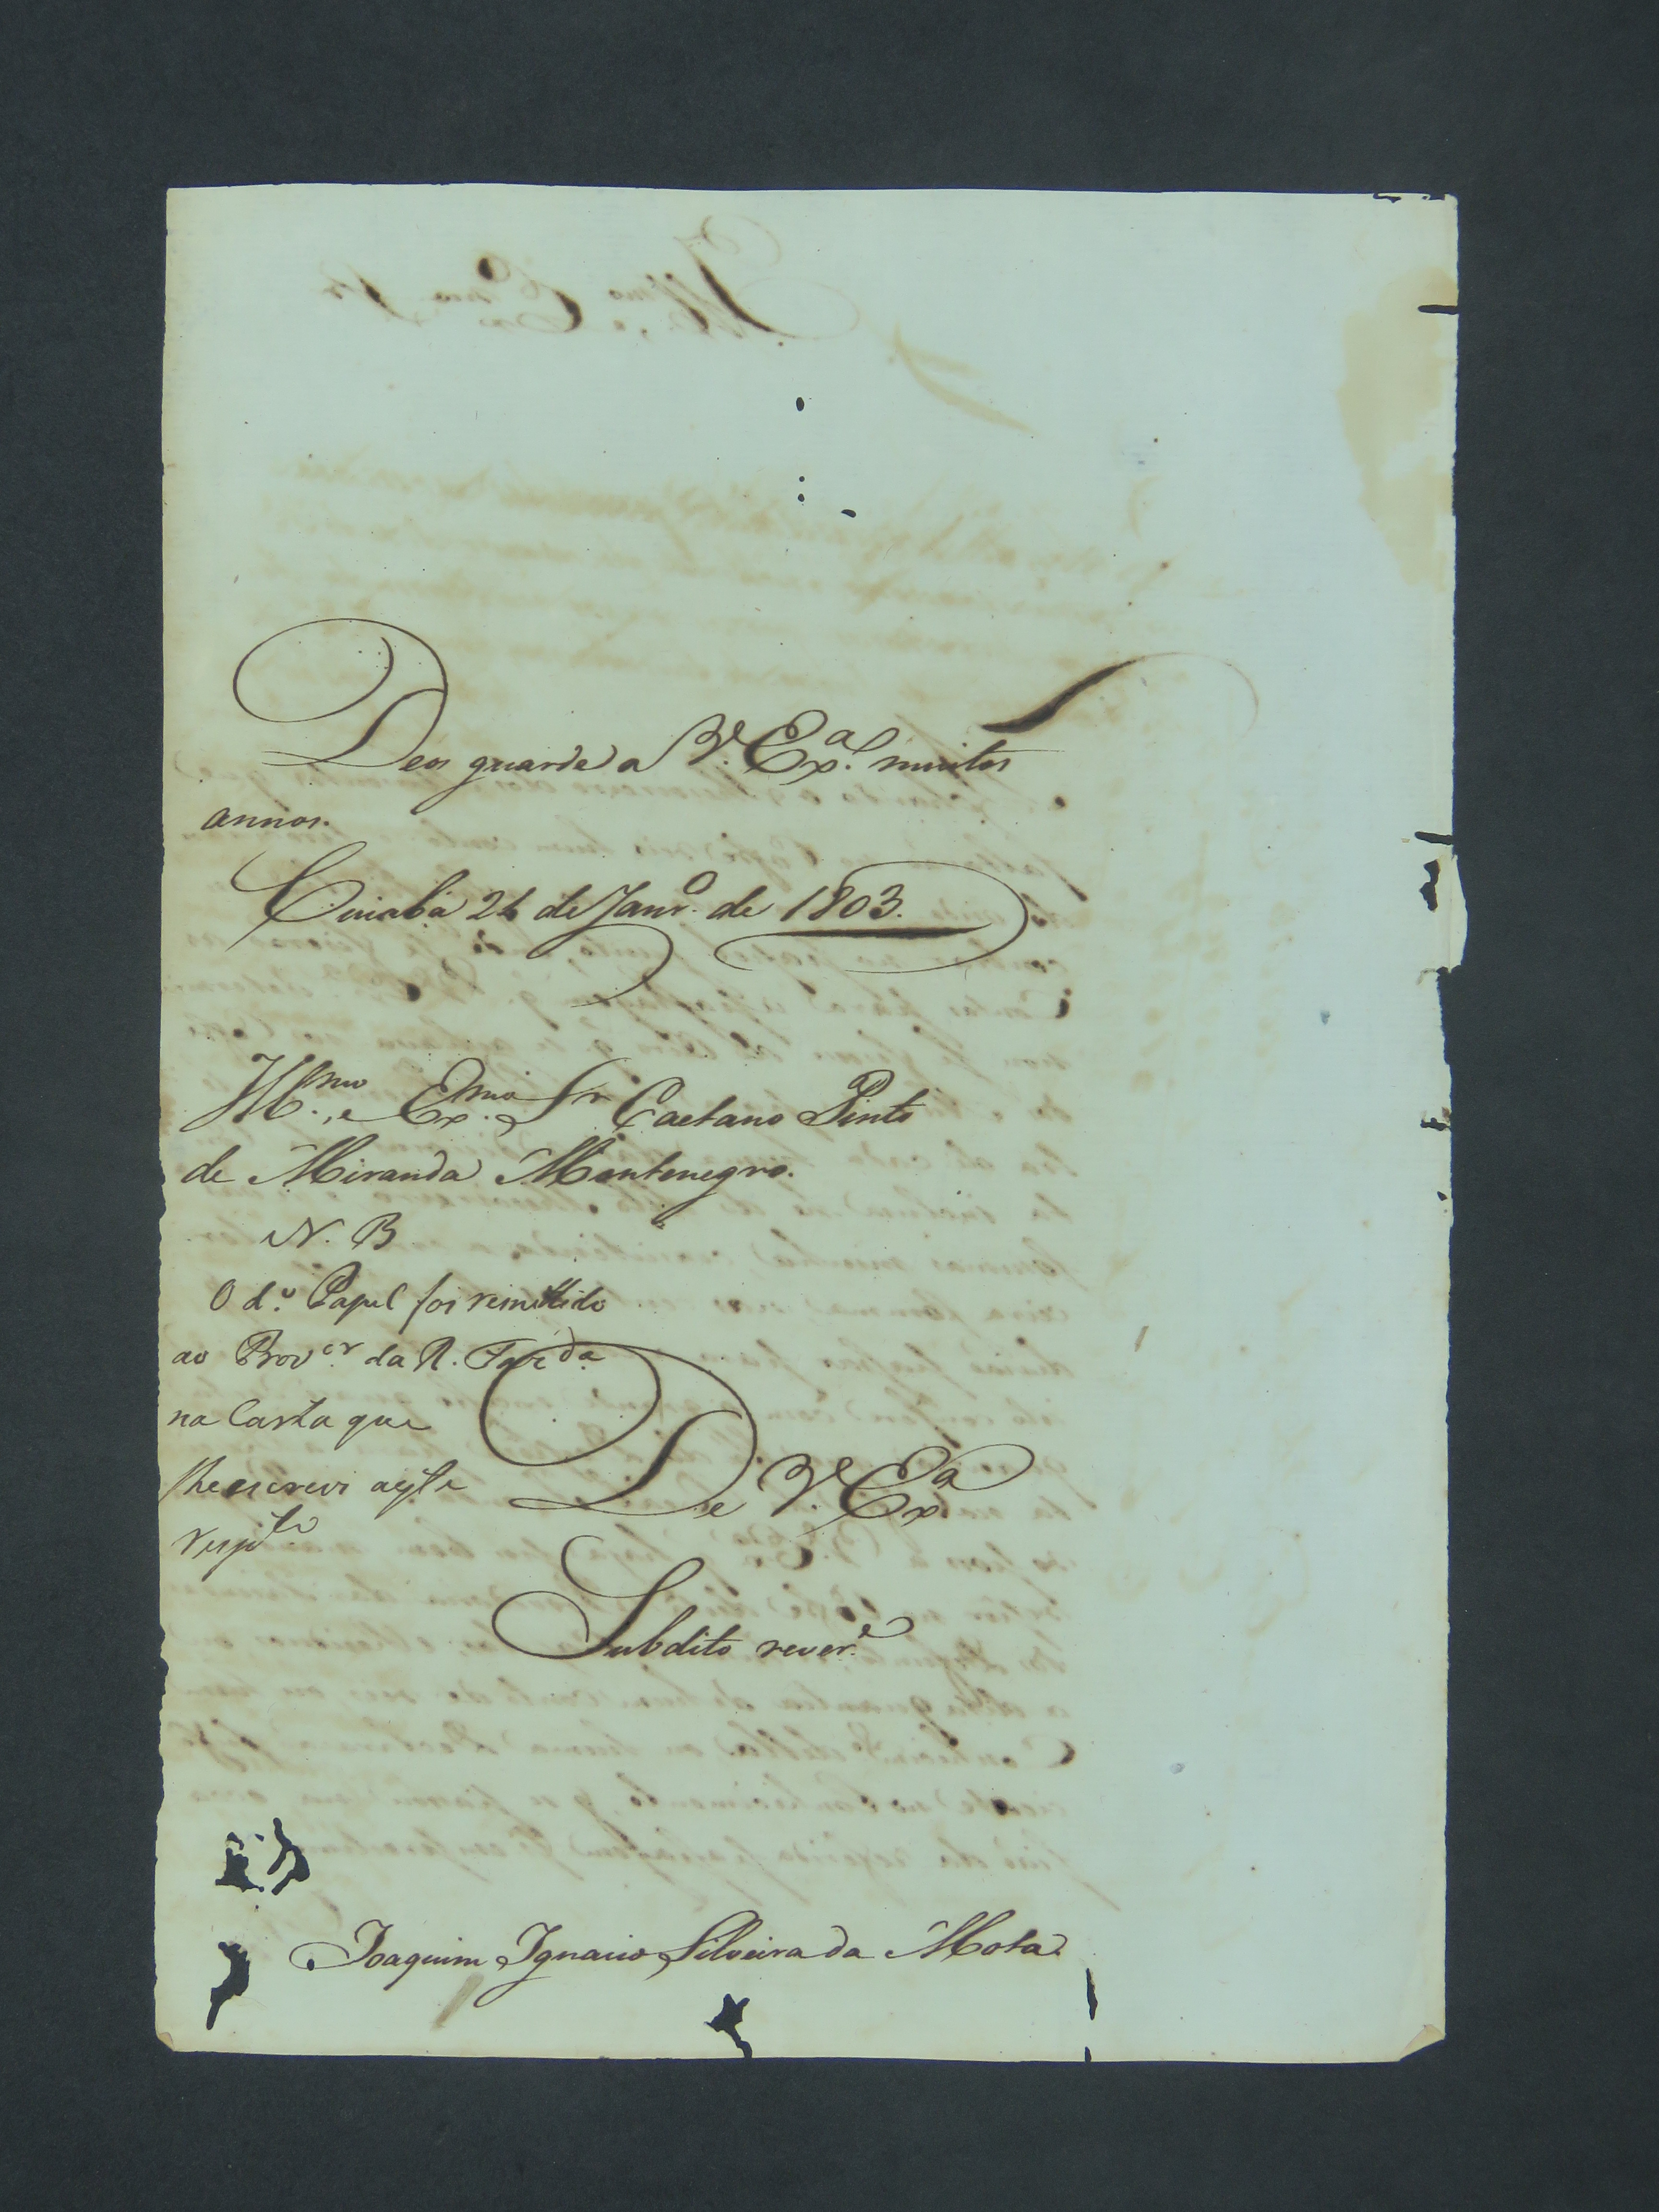 Deos guarde a V. Ex.ª muitos
annos.
Cuiabá 24 de Janr.º de 1803.
Ill.mo, e Ex.mo Sr Caetano Pinto
de Miranda Montenegro.
N. B
O d.º Papel foi remettido
ao Prov.or da R. Fazda
na Carta que
lhe escrevi a este
resp.to
De V. Ex.ª
Subdito rever.e
Joaquim Ignacio Silveira da Mota.